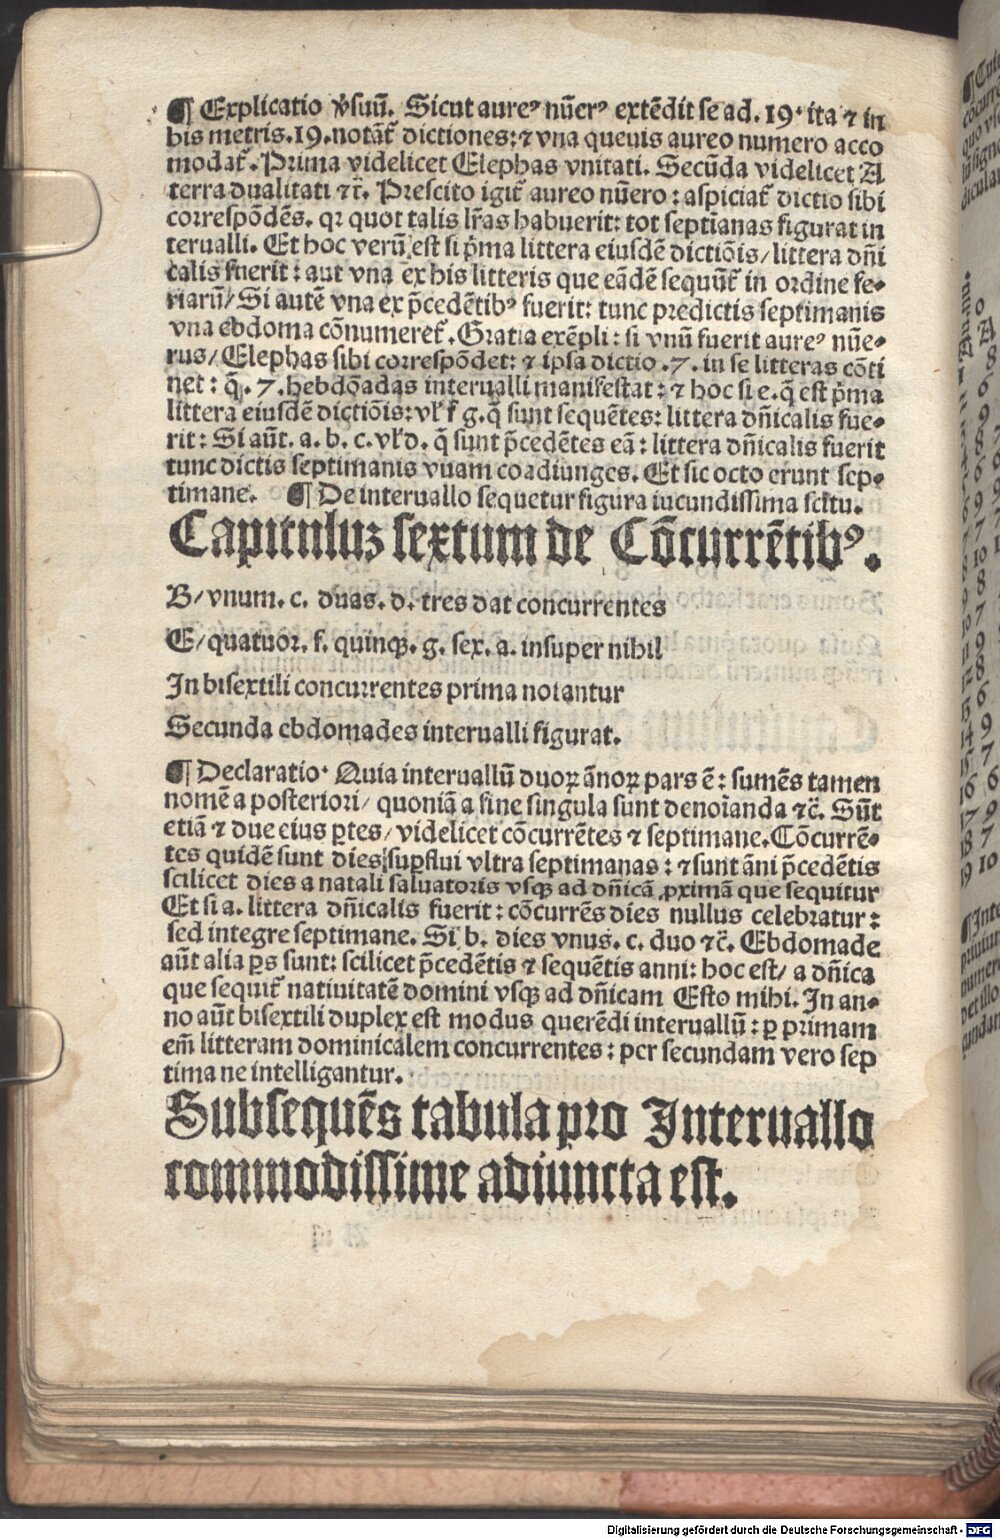 ¶ Explicatio v̾suū. Sicut aureꝰ nūerꝰ extēdit se ad .19. ita ⁊ in
his metris .19. notāt᷑ dictiones: ⁊ vna queuis aureo numero acco
modat᷑. Prima videlicet Elephas vnitati. Secūda videlicet A
terra dualitati ⁊c̄. Prescito igit᷑ aureo nūero: aspiciat᷑ dictio sibi
correspōdēs. qꝛ quot talis lr̄as habuerit: tot septīanas figurat in
terualli. Et hoc verū est si p̄ma littera eiusdē dictiōis/ littera dn̄i
calis fuerit: aut vna ex his litteris que eādē sequūt᷑ in ordine fe⸗
riarū/ Si autē vna ex p̄cedētibꝰ fuerit: tunc predictis septimanis
vna ebdoma cōnumeret᷑. Gratia exēpli: si vnū fuerit aureꝰ nūe⸗
rus/ Elephas sibi correspōdet: ⁊ ipsa dictio .7. in se litteras cōti
net: q̄ .7. hebdōadas interualli manifestat: ⁊ hoc si e. q̄ est p̄ma
littera eiusdē dictiōis: vl̓ f̓ g. q̄ sunt sequētes: littera dn̄icalis fue⸗
rit: Si aūt. a. b. c. vl̓ d. q̄ sunt p̄cedētes eā: littera dn̄icalis fuerit
tunc dictis septimanis vnam coadiunges. Et sic octo erunt sep⸗
timane. ¶ De interuallo sequetur figura iucundissima scitu.
Capituluꝫ sextum de Cōcurrētibꝰ.
B/ vnum. c. duas. d. tres dat concurrentes
E/ quatuor. f. quinqꝫ. g. sex. a. insuper nihil
In bisextili concurrentes prima notantur
Secunda ebdomades interualli figurat.
¶ Declaratio. Quia interuallū duoꝝ ānoꝝ pars ē: sumēs tamen
nomē a posteriori/ quoniā a fine singula sunt denoīanda ⁊c̄. Sūt
etiā ⁊ due eius ꝑtes/ videlicet cōcurrētes ⁊ septimane. Cōcurrē⸗
tes quidē sunt dies suꝑflui vltra septimanas: ⁊ sunt āni p̄cedētis
scilicet dies a natali saluatoris vsqꝫ ad dn̄icā ꝓximā que sequitur
Et si a. littera dn̄icalis fuerit: cōcurrēs dies nullus celebratur:
sed integre septimane. Si b. dies vnus. c. duo ⁊c̄. Ebdomade
aūt alia ꝑs sunt: scilicet p̄cedētis ⁊ sequētis anni: hoc est/ a dn̄ica
que sequit᷑ natiuitatē domini vsqꝫ ad dn̄icam Esto mihi. In an⸗
no aūt bisextili duplex est modus querēdi interuallū: ꝑ primam
em̄ litteram dominicalem concurrentes: per secundam vero sep
timane intelligantur.
Subsequēs tabula pro Interuallo
commodissime adiuncta est.
Digitalisierung gefördert durch die Deutsche Forschungsgemeinschaft - DFG